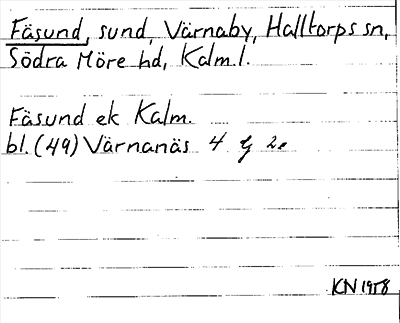 Fäsund, sund, Värnaby, Halltorps sn,
Södra Möre hd, Kalm.l.
Fäsund ek Kalm.
bl. (49) Värnanäs 4 g 2e
KN 1958